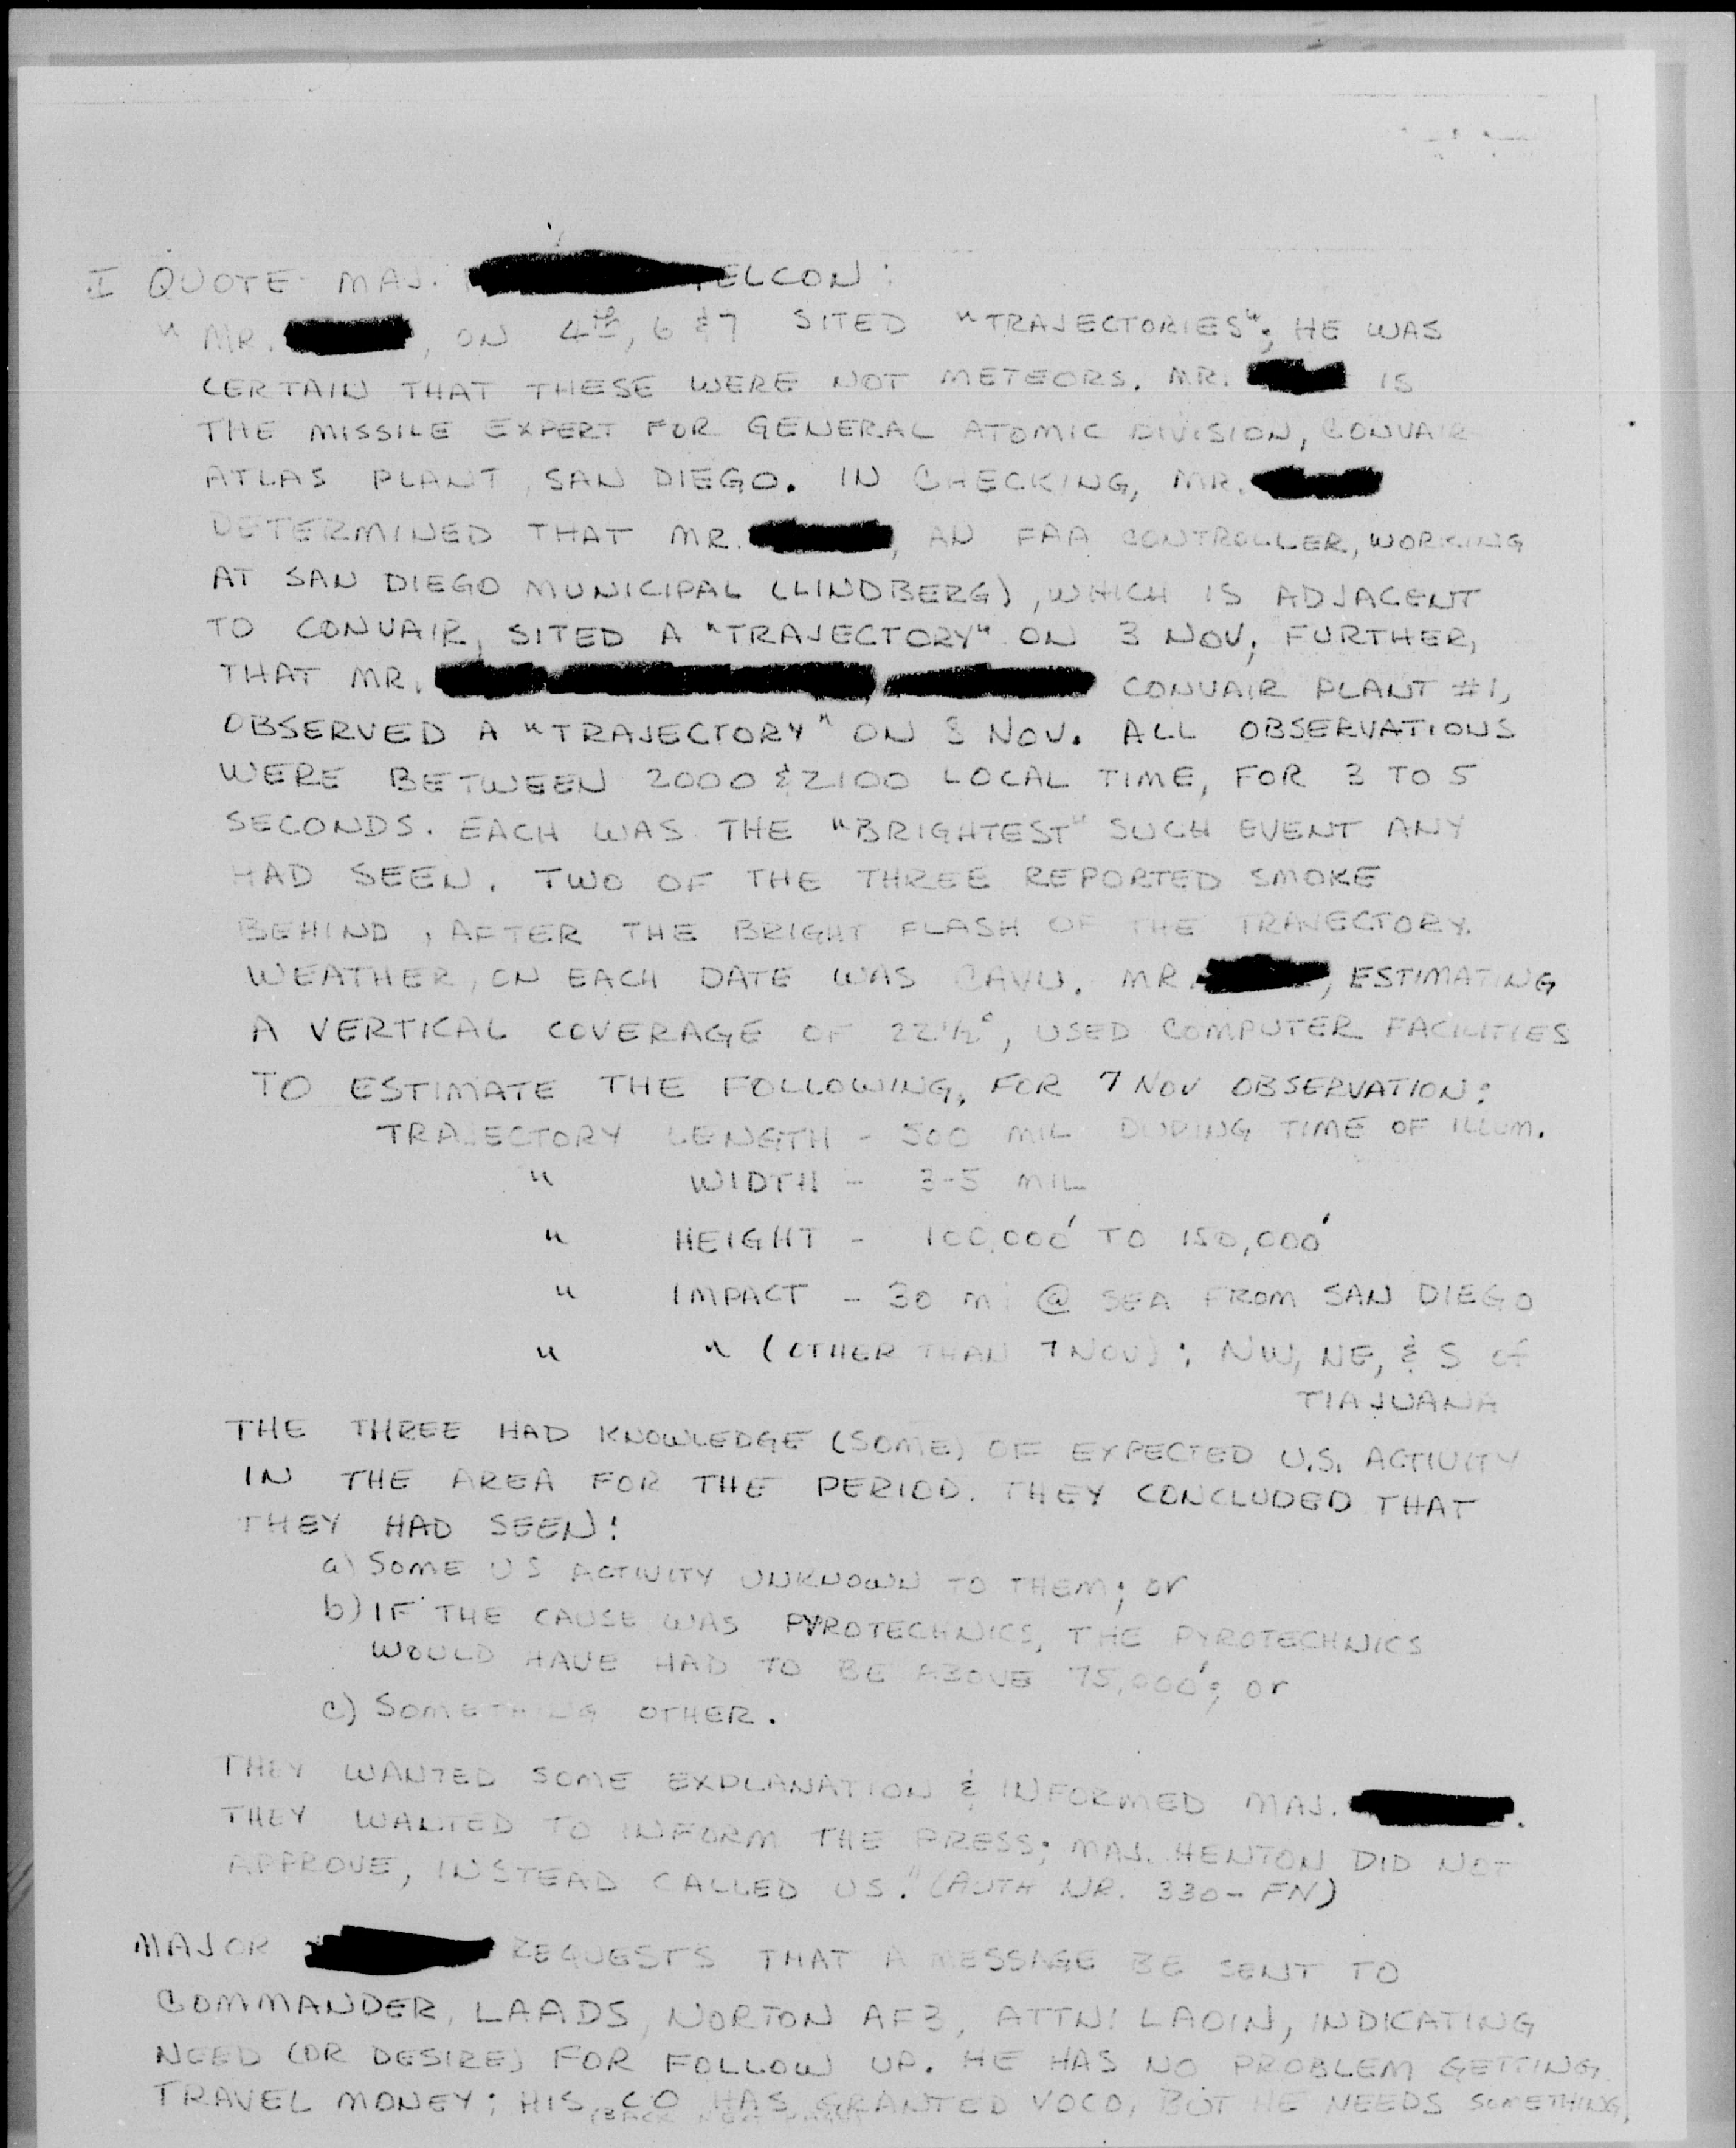 I QUOTE MAJ. ELCON:
" MR. , ON 4th, 6 & 7 SITED "TRAJECTORIES"; HE WAS
CERTAIN THAT THESE WERE NOT METEORS. MR. IS
THE MISSILE EXPERT FOR GENERAL ATOMIC DIVISION, CONVAIR
ATLAS PLANT, SAN DIEGO. IN CHECKING, MR.
DETERMINED THAT MR. , AN FAA CONTROLLER, WORKING
AT SAN DIEGO MUNICIPAL (LINDBERG), WHICH IS ADJACENT
TO CONVAIR, SITED A "TRAJECTORY" ON 3 NOV; FURTHER,
THAT MR. CONVAIR PLANT #1,
OBSERVED A "TRAJECTORY" ON NOV. ALL OBSERVATIONS
WERE BETWEEN 2000 & 2100 LOCAL TIME, FOR 3 TO 5
SECONDS. EACH WAS THE "BRIGHTEST" SUCH EVENT ANY
HAD SEEN. TWO OF THE THREE REPORTED SMOKE
BEHIND, AFTER THE BRIGHT FLASH OF THE TRAJECTORY.
WEATHER, ON EACH DATE WAS CAVU. MR. , ESTIMATING
A VERTICAL COVERAGE OF 22 1/2°, USED COMPUTER FACILITIES
TO ESTIMATE THE FOLLOWING, FOR 7 NOV OBSERVATION:
TRAJECTORY LENGTH - 500 MIL DURING TIME OF ILLUM.
" WIDTH - 3-5 MIL
" HEIGHT - 100,000' TO 150,000'
" IMPACT - 30 mi @ SEA FROM SAN DIEGO
" " (OTHER THAN 7 NOV): NW, NE, & S of
TIAJUANA
THE THREE HAD KNOWLEDGE (SOME) OF EXPECTED U.S. ACTIVITY
IN THE AREA FOR THE PERIOD. THEY CONCLUDED THAT
THEY HAD SEEN:
a) SOME US ACTIVITY UNKNOWN TO THEM; or
b) IF THE CAUSE WAS PYROTECHNICS, THE PYROTECHNICS
WOULD HAVE HAD TO BE ABOVE 75,000'; or
c) SOMETHING OTHER.
THEY WANTED SOME EXPLANATION & INFORMED MAJ. .
THEY WANTED TO INFORM THE PRESS; MAJ. HENTON DID NOT
APPROVE, INSTEAD CALLED US." (AUTH NR. 330-FN)
MAJOR REQUESTS THAT A MESSAGE BE SENT TO
COMMANDER, LAADS, NORTON AFB, ATTN: LAOIN, INDICATING
NEED (OR DESIRE) FOR FOLLOW UP. HE HAS NO PROBLEM GETTING
TRAVEL MONEY; HIS CO HAS GRANTED VOCO, BUT HE NEEDS SOMETHING